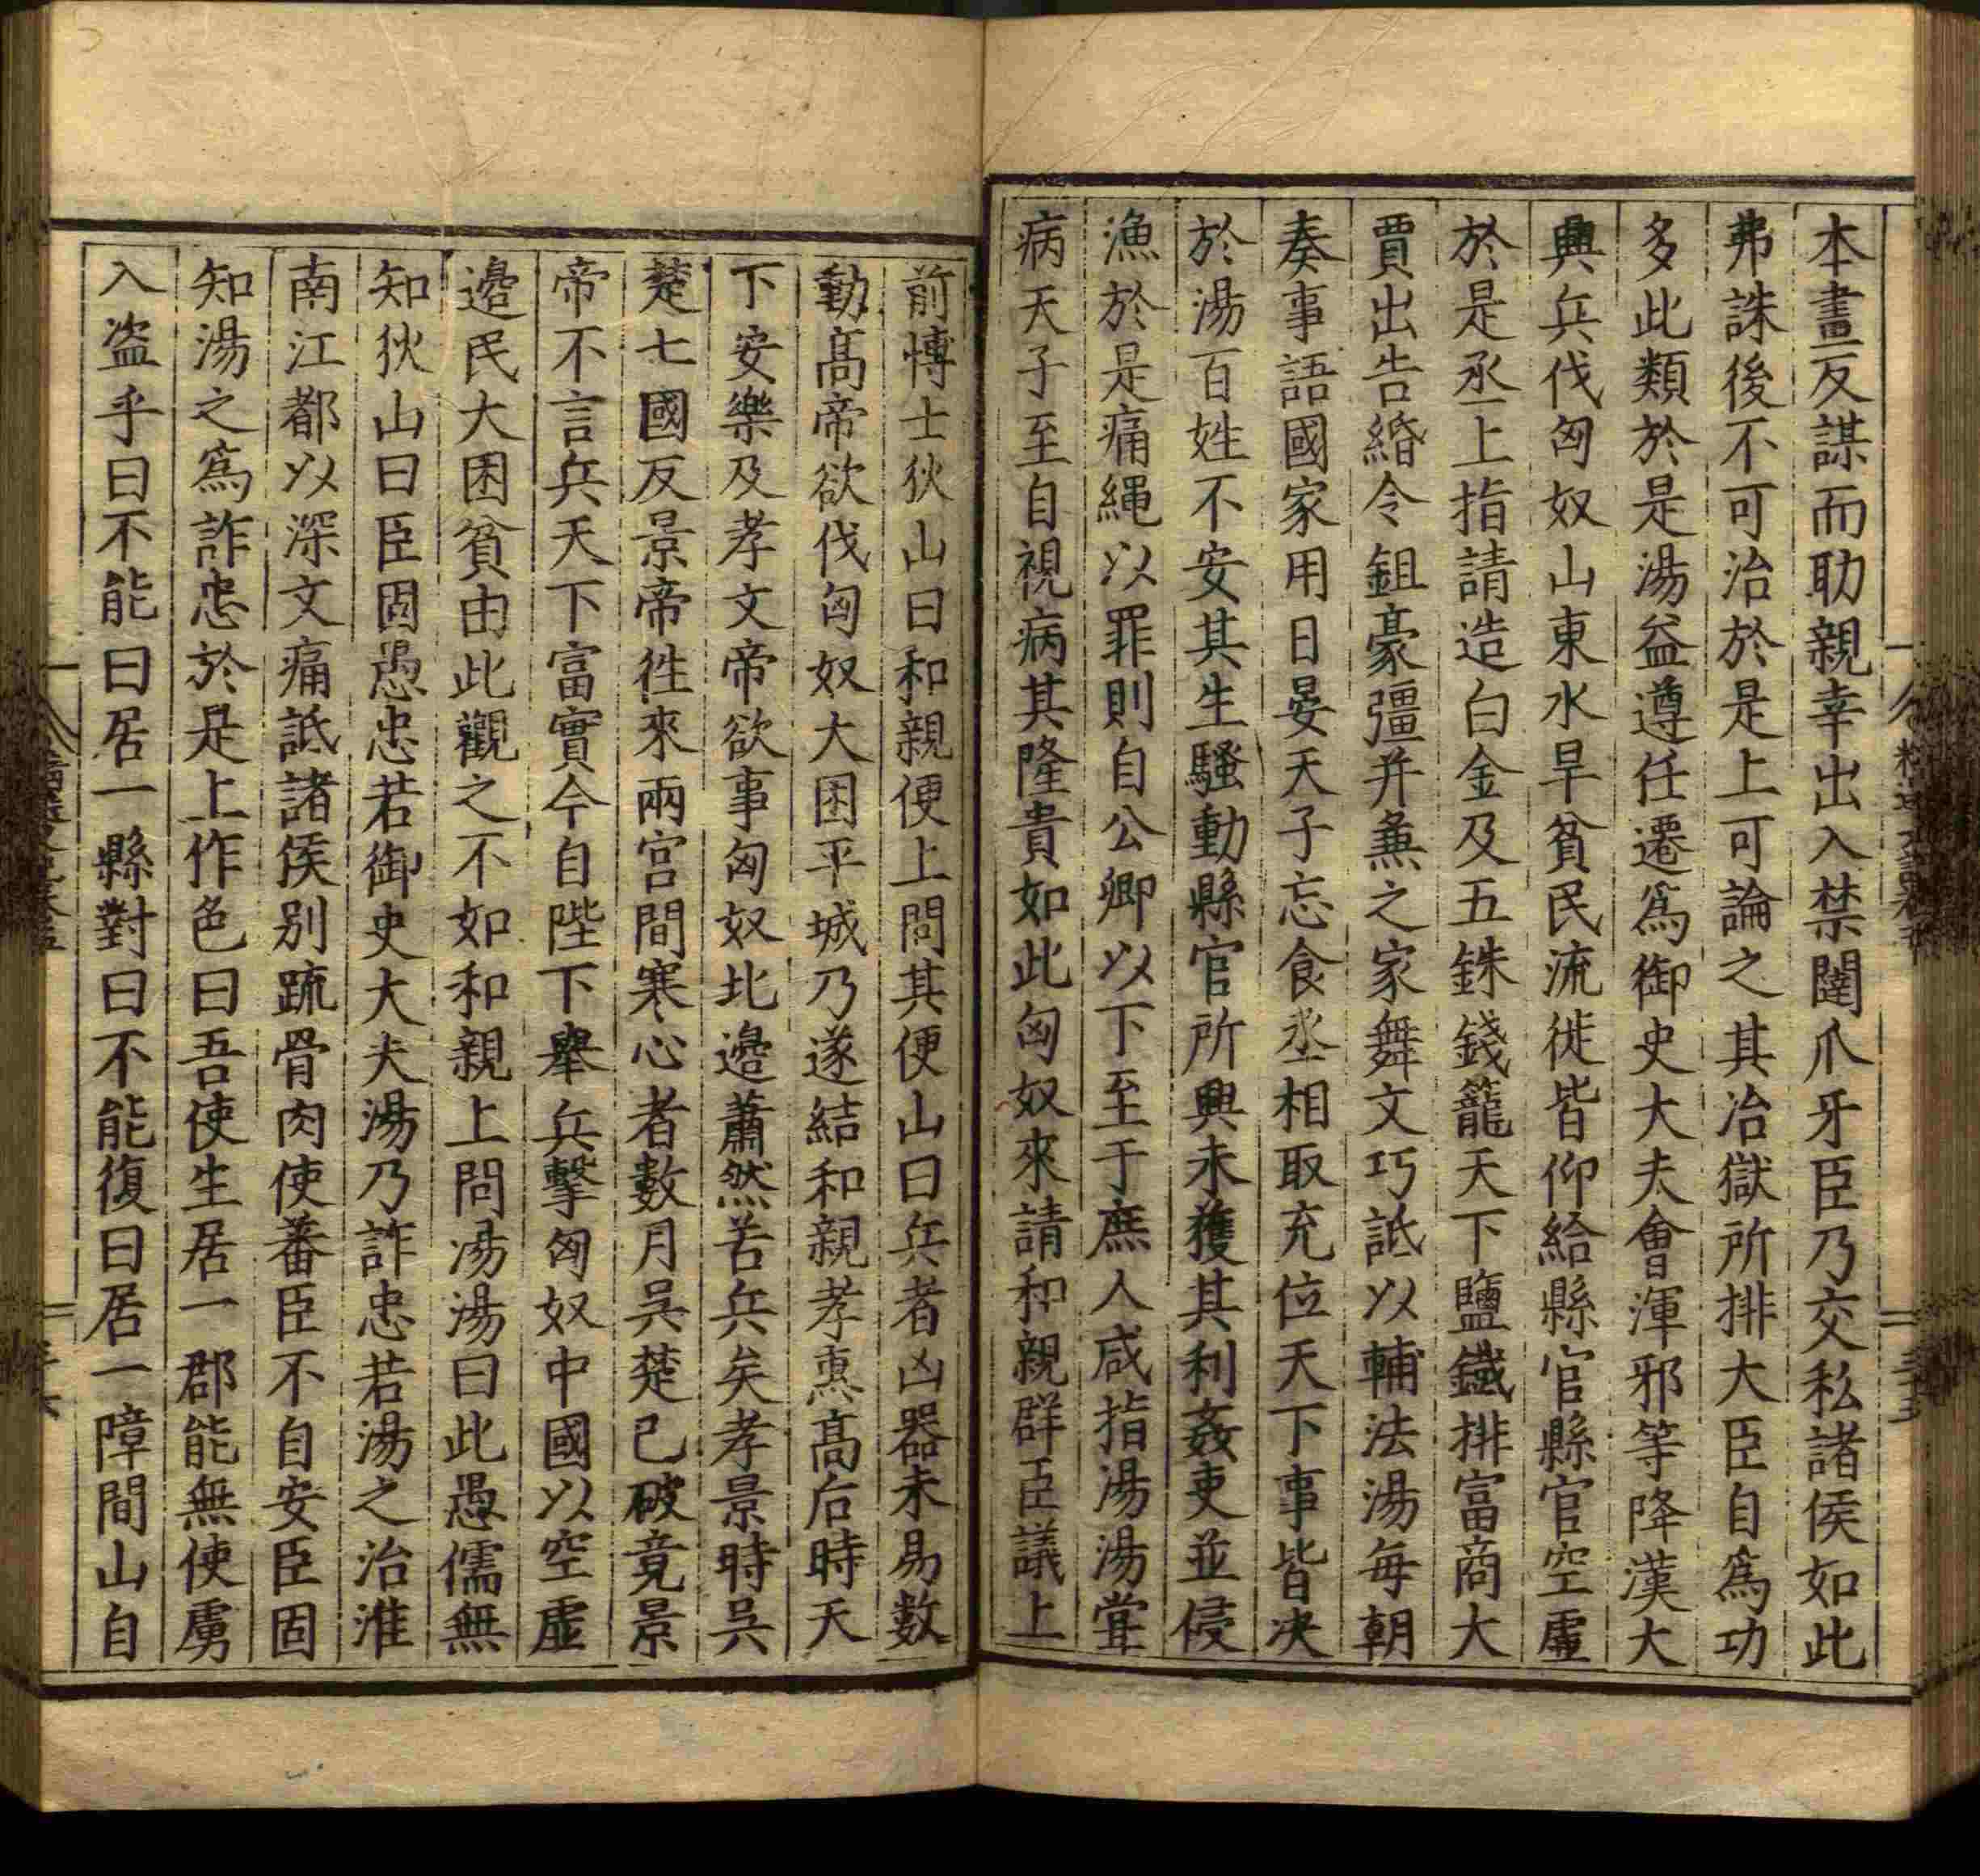 本畫反謀而助親幸出入禁闥爪牙臣乃交私諸侯如此
弗誅後不可治於是上可論之其治獄所排大臣自爲功
多此類於是湯益遵任遷爲御史大夫會渾邪等降漢大
興兵伐匈奴山東水旱貧民流徙皆仰給縣官縣官空虛
於是丞上指請造白金及五銖錢籠天下鹽鐵排富商大
賈出告緡令鉏豪彊并兼之家舞文巧詆以輔法湯每朝
奏事語國家用日晏天子忘食丞相取充位天下事皆决
於湯百姓不安其生騷動縣官所興未獲其利姦吏並侵
漁於是痛繩以罪則自公卿以下至于庶人咸指湯湯甞
病天子至自視病其隆貴如此匈奴來請和親群臣議上
前博士狄山曰和親便上問其便山曰兵者凶器未易數
動高帝欲伐匈奴大困平城乃遂結和親孝惠高后時天
下安樂及孝文帝欲事匈奴北邊蕭然苦兵矣孝景時吳
楚七國反景帝徃來兩宮間寒心者數月吳楚已破竟景
帝不言兵天下富實今自陛下舉兵擊匈奴中國以空虛
邊民大困貧由此觀之不如和親上問湯湯曰此愚儒無
知狄山曰臣固愚忠若御史大夫湯乃詐忠若湯之治淮
南江都以深文痛詆諸侯別疏骨肉使蕃臣不自安臣固
知湯之爲詐忠於是上作色曰吾使生居一郡能無使虜
入盜乎曰不能曰居一縣對曰不能復曰居一障間山自